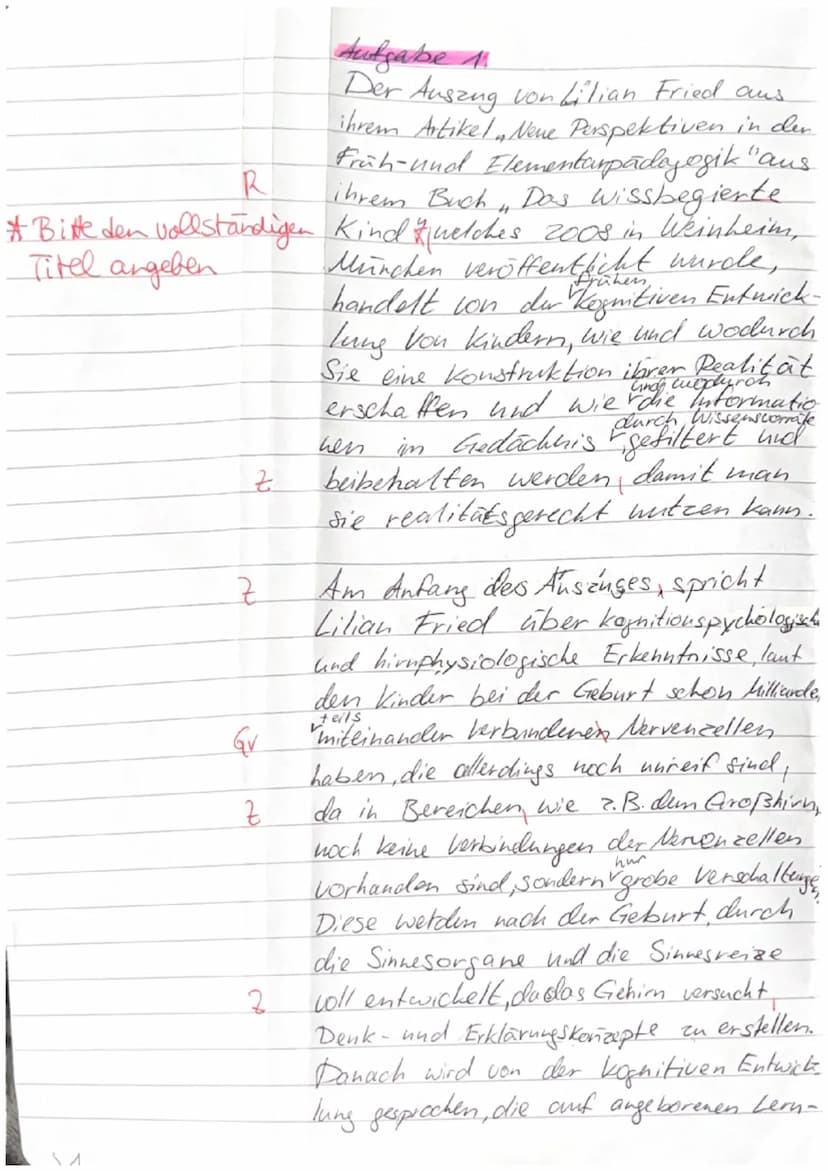 Aufgabe 1.
Der Auszug von Lilian Fried aus
ihrem Artikel „Neue Perspektiven in der
Früh- und Elementarpädagogik" aus
R
ihrem Buch „Das wissbegierte
* Bitte den vollständigen
Titel angeben
Kind" * welches 2008 in Weinheim,
München veröffentlicht wurde,
frühen
handelt von der kognitiven Entwick-
lung von Kindern, wie und wodurch
Sie eine Konstruktion ihrer Realität
und wodurch
erschaffen und wie die Informatio
durch Wissensvorräte
nen im Gedächnis gefiltert und
Z
beibehalten werden, damit man
sie realitätsgerecht nutzen kann.
Z
Am Anfang des Auszuges, spricht
Lilian Fried über kognitionspychologisch
und hirnphysiologische Erkenntnisse, laut
den Kinder bei der Geburt schon Milliarde,
teils
Gr
miteinander verbundenen Nervenzellen
haben, die allerdings noch unreif sind,
Z
da in Bereichen, wie z.B. dem Großhirn,
noch keine Verbindungen der Nervenzellen
nur
vorhanden sind, sondern grobe Verschaltunge,
Diese werden nach der Geburt, durch
die Sinnesorgane und die Sinnesreize
Z
voll entwickelt, da das Gehirn versucht,
Denk- und Erklärungskonzepte zu erstellen.
Danach wird von der kognitiven Entwick-
lung gesprochen, die auf angeborenen Lern-